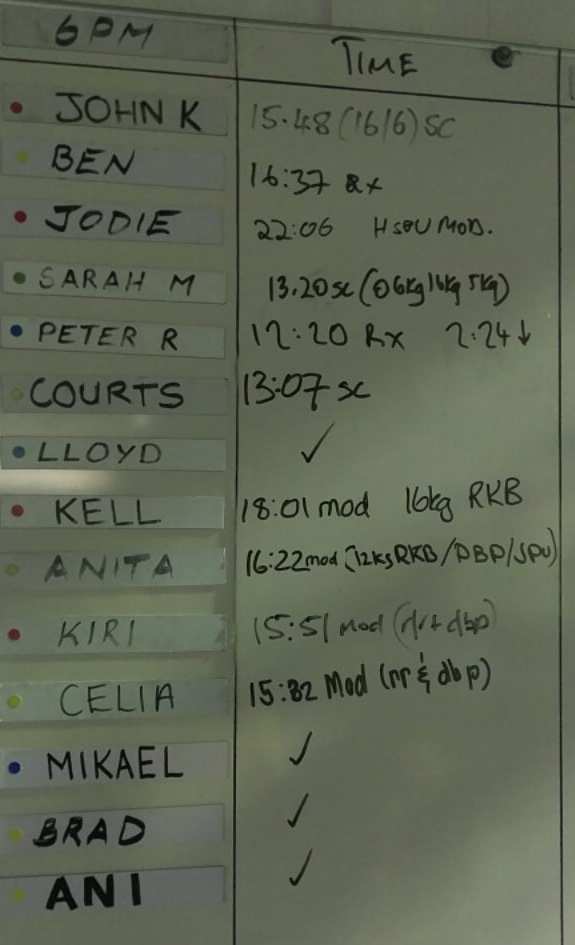 6PM TIME
JOHN K 15.48 (16/6) SC
BEN 16:37 Rx
JODIE 22:06 HSPU MOD.
SARAH M 13.20 SC (06kg 16kg 5kg)
PETER R 12:20 Rx 2:24↓
COURTS 13:07 SC
LLOYD ✓
KELL 18:01 mod 16kg RKB
ANITA 16:22 mod (12kg RKB/DBP/JPU)
KIRI 15:51 mod ( dbp)
CELIA 15:32 Mod (rr & dbp)
MIKAEL ✓
BRAD ✓
ANI ✓